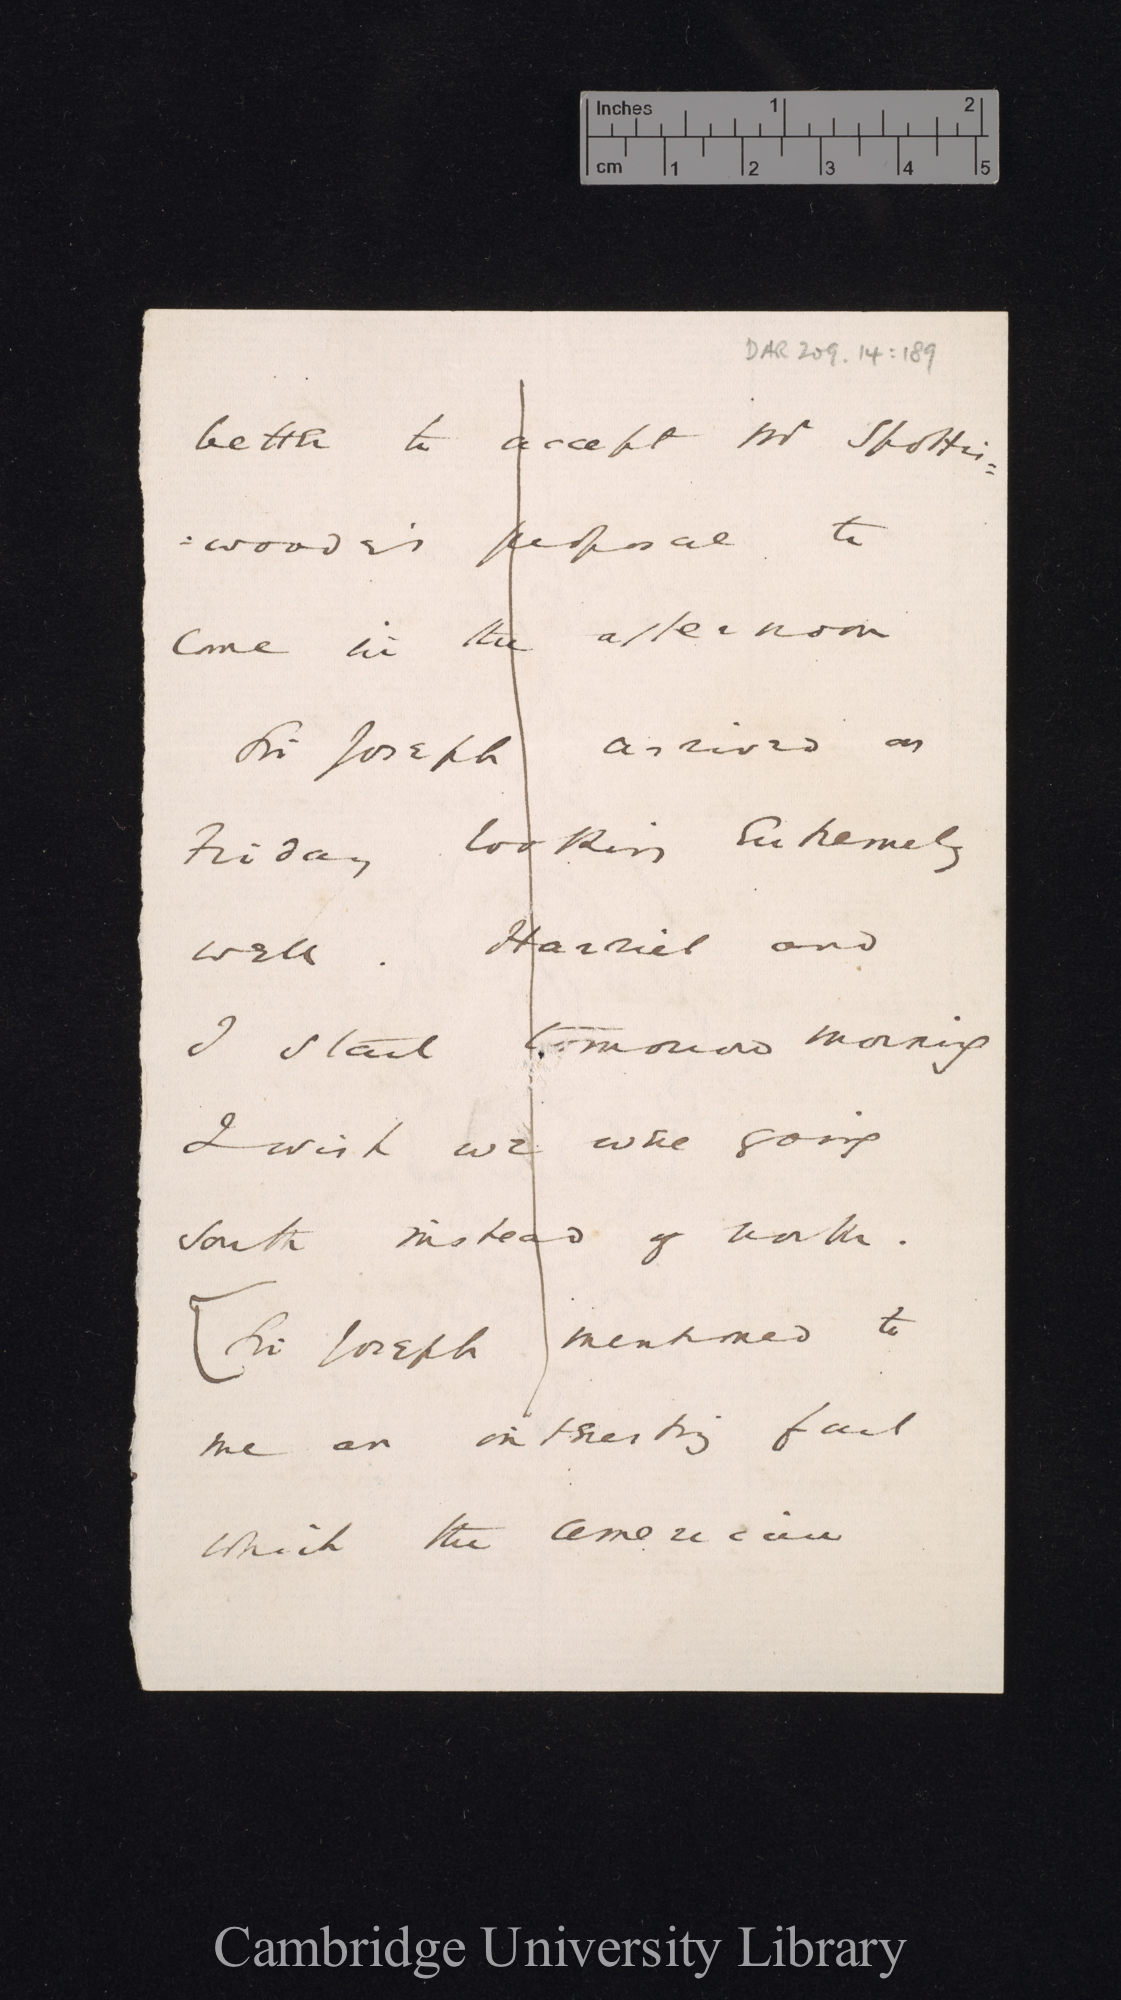 Inches 1 2
cm 1 2 3 4 5
DAR 209.14:189
better to accept Mr Spottis=
=woode's proposal to
come in the afternoon
Sir Joseph arrived on
Friday looking extremely
well. Harriet and
I start tomorrow morning
I wish we were going
South instead of north.
[Sir Joseph mentioned to
me an interesting fact
which the American
Cambridge University Library